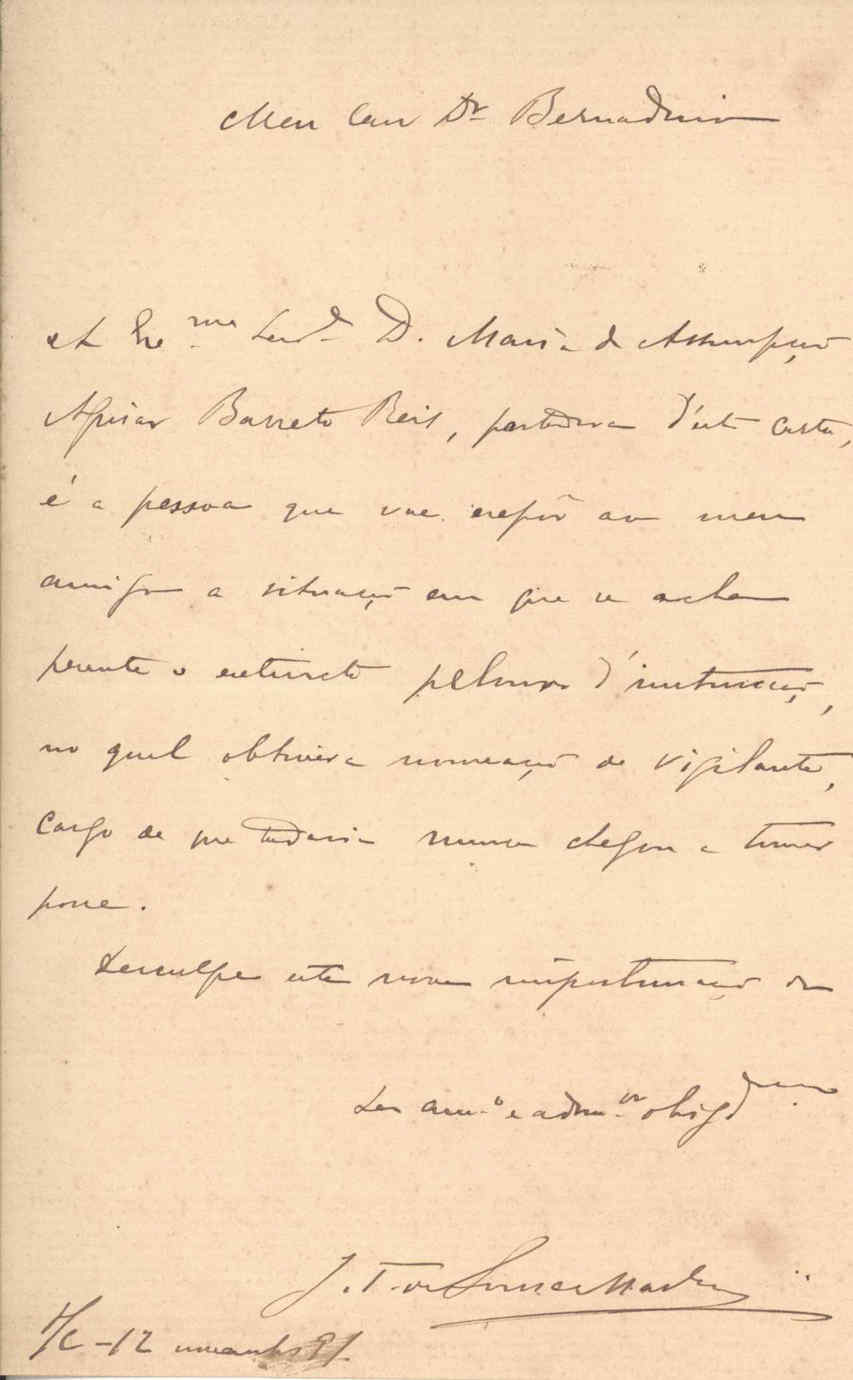 Meu Caro Dr Bernardino
A Exma Senra D. Maria da Assumpção
Barreto Reis, portadora d'esta carta,
é a pessoa que vae expôr ao meu
amigo a situação em que se acha
perante o extincto pelouro d'instrucção,
no qual obtivera nomeação de vigilante,
cargo de que todavia nunca chegou a tomar
posse.
Desculpe esta nova importunação do
Seu amo e admor obrigdmo
J. T. de Sousa Martins
S/C - 12 novembro 91